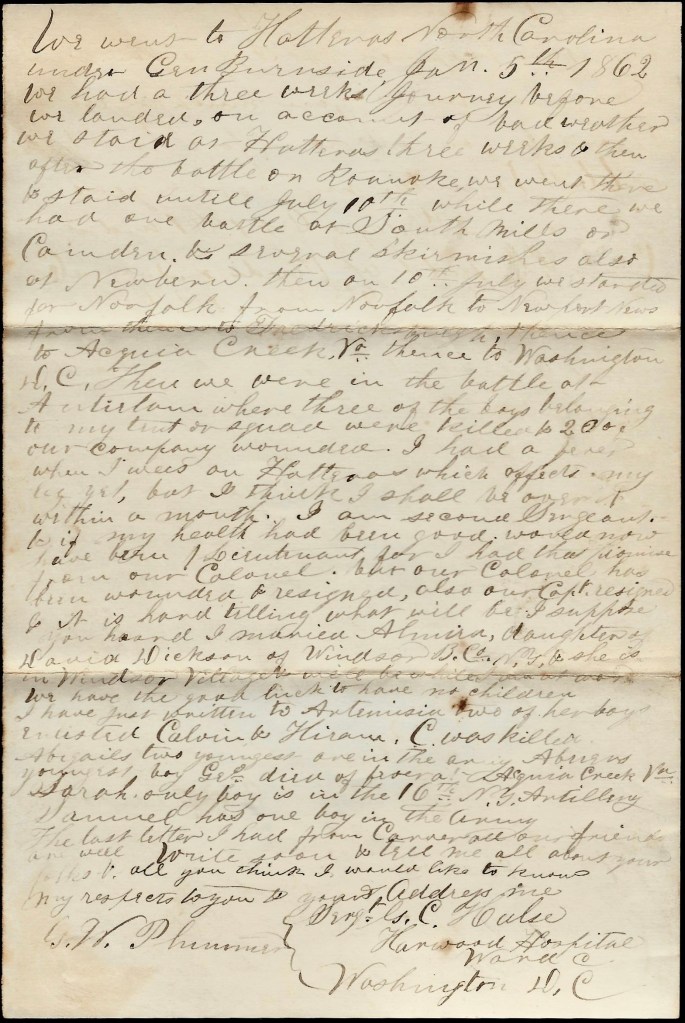 We went to Hatteras North Carolina
under Gen Burnside, Jan. 5th 1862
We had a three weeks Journey before
we landed, on account of bad weather
we staid at Hatteras three weeks & then
after the battle on Roanoke, we went there
& staid untill July 10th while there we
had one battle at South Mills or
Camden. & several skirmishes also
at Newbern. then on 10th July we started
for Norfolk from Norfolk to Newport News
from thence to Fredricksburgh, thence
to Acquia Creek, Va. thence to Washington
D. C. Then we were in the battle at
Antietam where three of the boys belonging
to my tent or squad were killed & 20 of
our company wounded. I had a fever
when I was on Hatteras which affects my
leg yet, but I think I shall be over it
within a month. I am second Sergeant.
& if my health had been good would now
have been 1 Lieutenant, for I had the promise
from our Colonel. but our Colonel has
been wounded & resigned, also our Capt. resigned
& it is hard telling what will be. I suppose
you heard I married Almira, daughter of
David Dickson of Windsor B. Co. N. Y. & she is
in Windsor Village
we have the good luck to have no children
I have just written to Artemisia two of her boys
enlisted Calvin & Hiram. C. was killed
Abigails two youngest are in the army Abners
youngest boy Geo. died of fever at Acquia Creek Va.
Sarah only boy is in the 16th N. Y. Artillery
Samuel has one boy in the army
The last letter I had from our friends
are well Write soon & tell me all about your
folks & all you think I would like to know
My respects to you & yours, Address me
Sergt. G. C. Hulse
G. W. Plummer Harwood Hospital
Ward C
Washington D. C